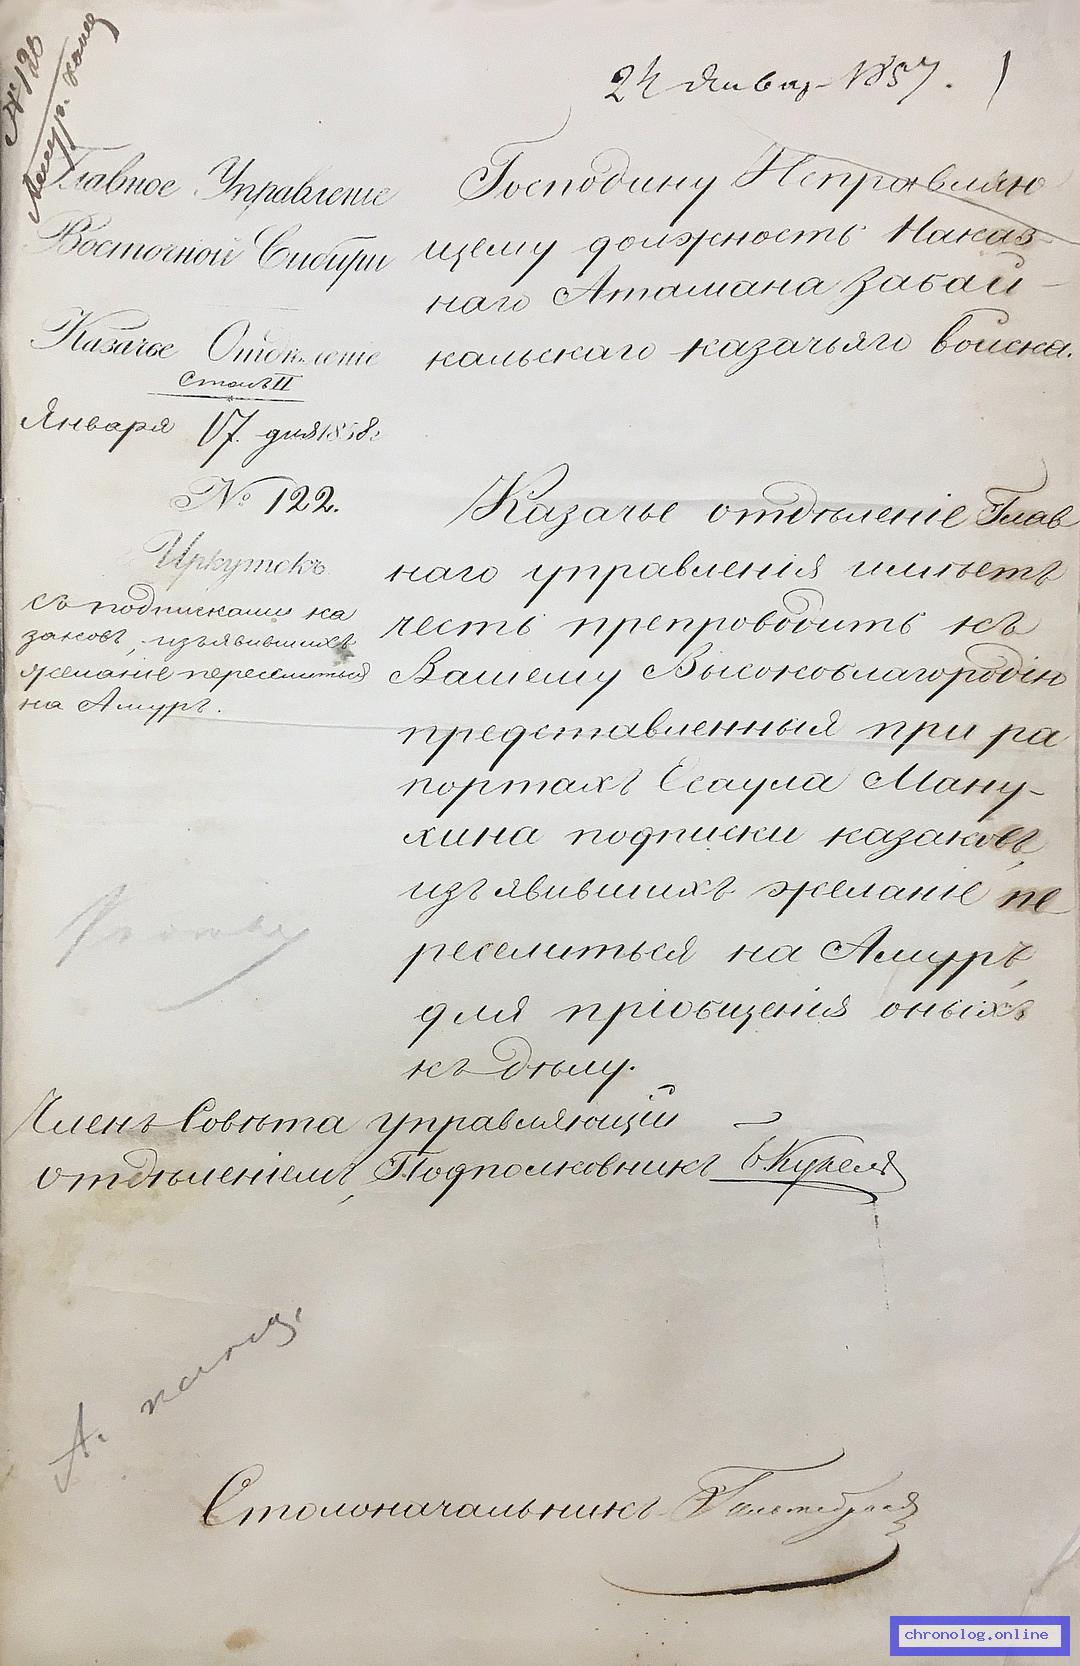 № 126
Амур. канц
24 Январ 1857.
Главное Управленіе
Восточной Сибири
Казачье Отдѣленіе
Столъ II
Января 17. дня 1858 г
№ 122.
Иркутскъ
Съ подписками ка
заковъ, изъявившихъ
желаніе переселиться
на Амуръ.
Господину Исправляю
щему должность Наказ-
наго Атамана Забай-
кальскаго казачьяго войска.
Казачье отдѣленіе Глав
наго управленія имѣетъ
честь препроводить къ
Вашему Высокоблагородію
представленныя при ра
портахъ Есаула Ману-
хина подписки казаковъ,
изъявившихъ желаніе пе
реселиться на Амуръ,
для пріобщенія оныхъ
къ дѣлу.
Членъ Совѣта управляющій
отдѣленіемъ, Подполковникъ Б Кукель
А. канц.
Столоначальникъ
chronolog.online